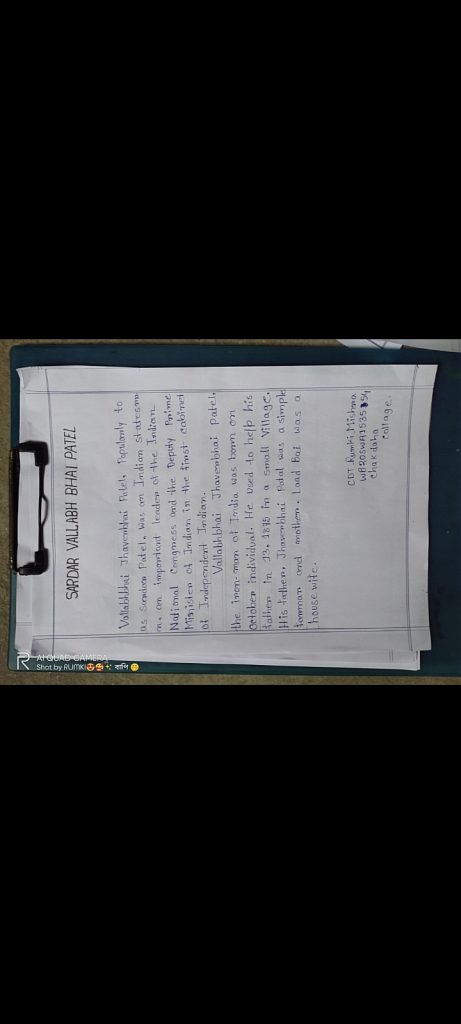 SARDAR VALLABH BHAI PATEL
Vallabhbhai Jhavenbhai Patel, Popularly to
as Sardar Patel. Was an Indian statesma
n. an important leader of the Indian
National Congress and the Deputy Prime
Minister of Indian in the first cabinet
of Independent Indian.
Vallabhbhai Jhavenbhai patel.
the iron-man of India was born on
October individual. He used to help his
father in 13. 1875 in a small Village.
His father, Jhavenbhai Patal was a simple
farmar and mother. Laad Bai was a
house wife.
CDT Rumki Mishra
WB20SWA1535
Chakdaha
Collage.
AI QUAD CAMERA
Shot by RUMKI😍🥰✨ বাপি 😋